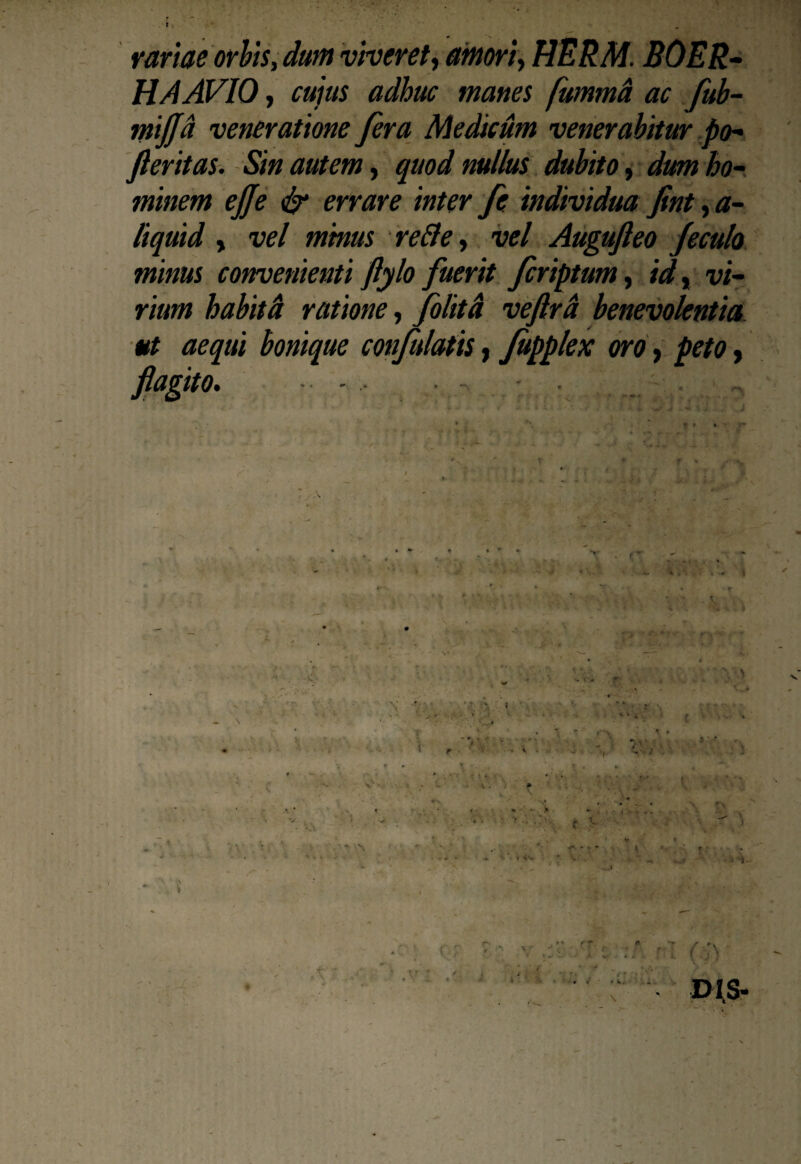 rariae orbis, dum viveret, amori, HERM. BOER-
HAAVIO, cujus adhuc manes ſummâ ac ſub-
miſſâ veneratione ſera Medicûm venerabitur po-
ſteritas. Sin autem, quod nullus dubito, dum ho-
minem eſſe & errare inter ſe individua ſint, a-
liquid, vel minus recte, vel Auguſteo ſeculo
minus convenienti ſtylo fuerit ſcriptum, id, vi-
rium habitâ ratione, ſolitâ veſtrâ benevolentia
ut aequi bonique conſulatis, ſupplex oro, peto,
flagito.
DIS-